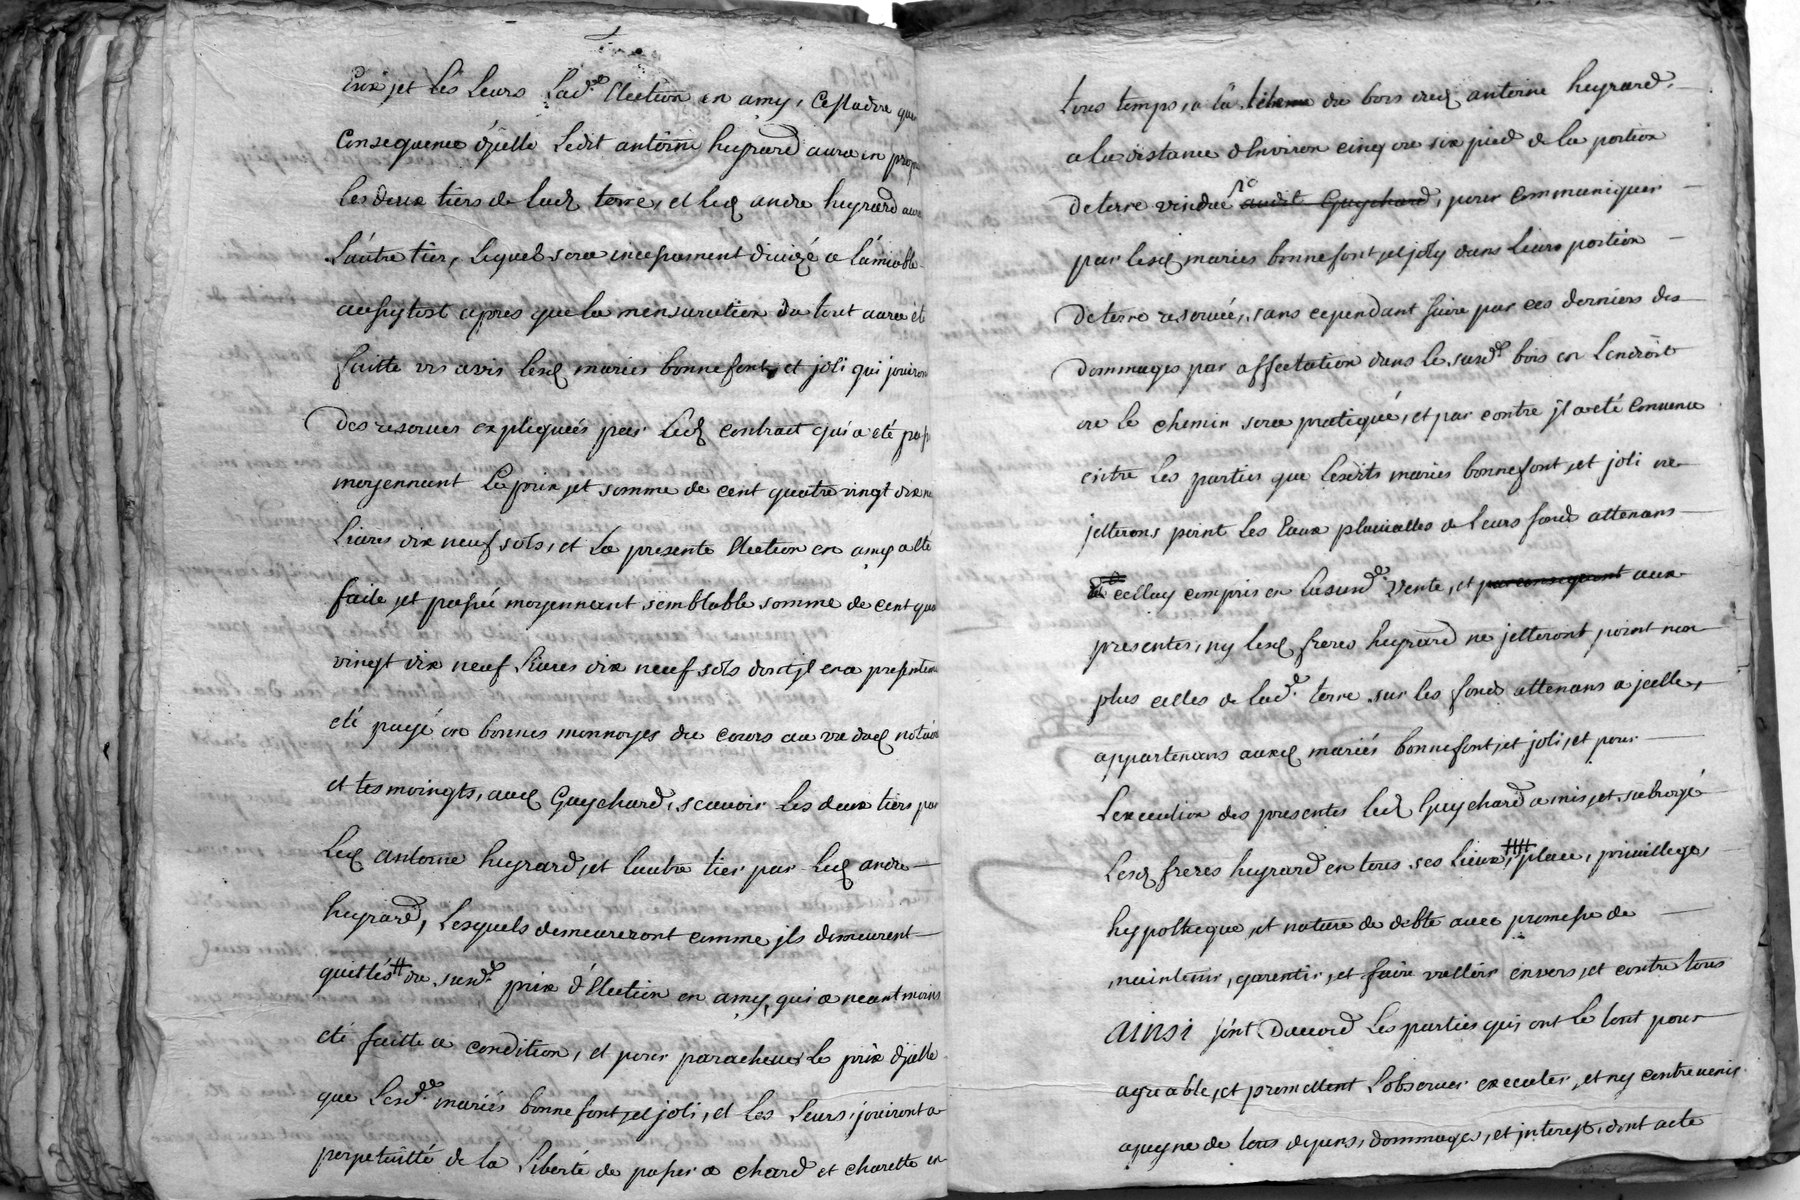 Eux, et Les Leurs Lad.e Election en amy, Cestadire que
Consequence d'jcelle Ledit antoine heyrard aura en propr
les deux tiers de lad terre, et led andre heyrard aura
L'autre tier, Lequel sera incessament divizé a L'amiable
aussytost apres que la mensuration du tout aura eté
faitte vis avis lesd mariés bonnefont, et joli qui jouiron
des reserves expliquées par led contract qui a eté pass
moyennant Le prix, et somme de cent quatre vingt dix ne
Livres dix neuf sols, et La presente Election en amy a eté
faite, et passée moyennant semblable somme de cent qua
vingt dix neuf Livres dix neuf sols dont jl en a presenteme
eté payé en bonnes monnoyes du cours au vu dud notaire
et tesmoingts, aud Guychard, scavoir Les deux tiers par
Led antoine heyrard, et lautre tier par Led andre
heyrard, Lesquels demeureront comme jls demeurent
quittés du susd.t prix d'Election en amy, qui a neantmoins
eté faitte a condition, et pour parachever le prix d'jcelle
que Lesd.ts mariés bonnefont, et joli, et Les Leurs, jouiront a
perpetuitté de la Liberté de passer a chard et charette en
tous temps, a la du bois dud antoine heyrard,
a la distance d'Environ cinq ou six pied de la portion
de terre vendue audit Guychard, pour communiquer
par lesd mariés bonnefont, et joly dans leurs portion
de terre reservée, sans cependant faire par ces derniers des
dommages par affectation dans le susd.t bois en L'endroit
ou le chemin sera pratiqué, et par contre jl a eté convenu
entre Les parties que lesdits mariés bonnefont, et joli ne
jetterons point Les Eaux pluvialles de Leurs fond attenans
a celluy compris en La susd.e vente, et par consequant aux
presentes, ny lesd freres heyrard ne jetteront point non
plus celles de lad.e terre sur les fond attenans a jcelle,
appartenans auxd mariés bonnefont, et joli, et pour
L'execution des presentes led Guychard a mis, et subrogé
Lesd freres heyrard en tous ses Lieux, place, privillege,
hypotheque, et nature de debte avec promesse de
maintenir, garentir, et faire valloir envers, et contre tous
ainsi sont D'accord Les parties qui ont Le tout pour
agreable, et promettent L'observer executer, et ny contrevenir
a peyne de tous depens, dommages, et jnterest, dont acte